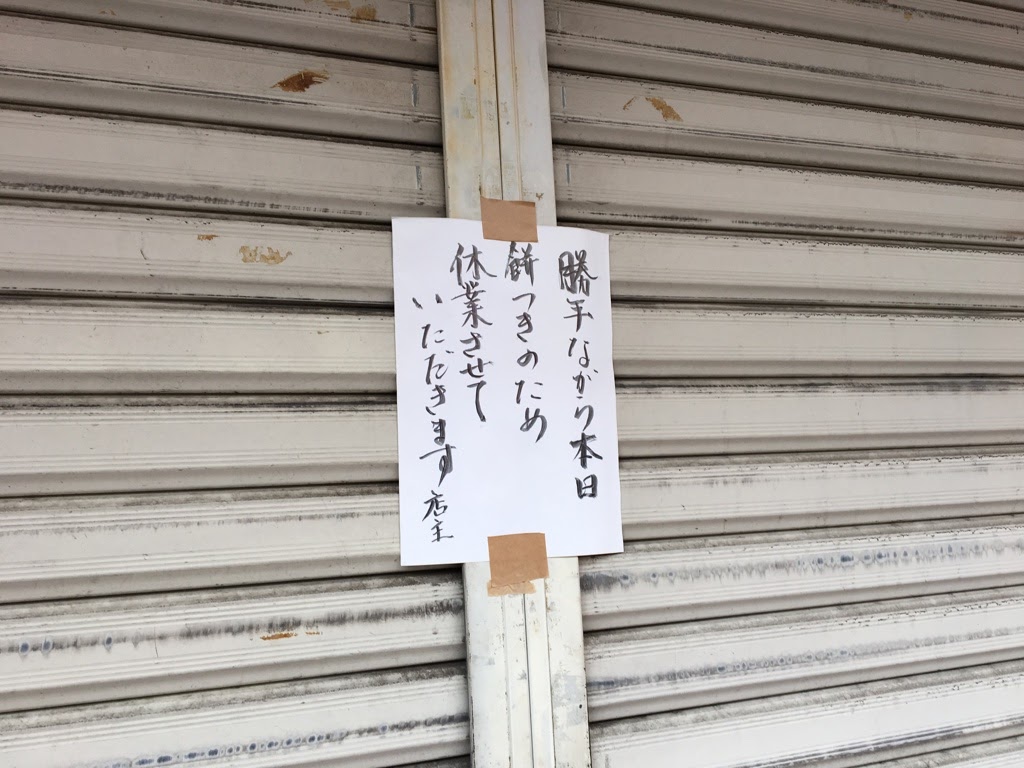 勝手ながら本日
餅つきのため
休業させて
いただきます 店主